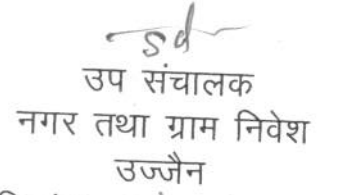 sd
उप संचालक
नगर तथा ग्राम निवेश
उज्जैन